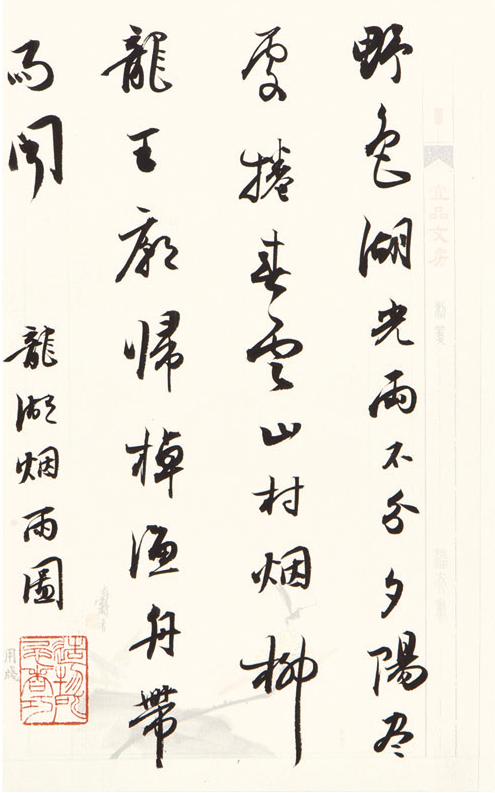 宜品文房
野色湖光兩不分夕陽尽
處捲春雲山村烟柳
龍王廟歸棹漁舟帶
雨聞
龍湖烟雨圖